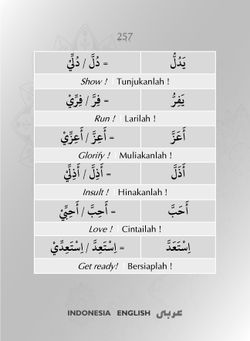 257
يَدُلُّ = دُلَّ / دُلِّيْ
Show ! Tunjukanlah !
يَفِرُّ = فِرَّ / فِرِّيْ
Run ! Larilah !
أَعَزَّ = أَعِزَّ / أَعِزِّيْ
Glorify ! Muliakanlah !
أَذَلَّ = أَذِلَّ / أَذِلِّيْ
Insult ! Hinakanlah !
أَحَبَّ = أَحِبَّ / أَحِبِّيْ
Love ! Cintailah !
اِسْتَعَدَّ = اِسْتَعِدَّ / اِسْتَعِدِّيْ
Get ready! Bersiaplah !
INDONESIA ENGLISH عربي